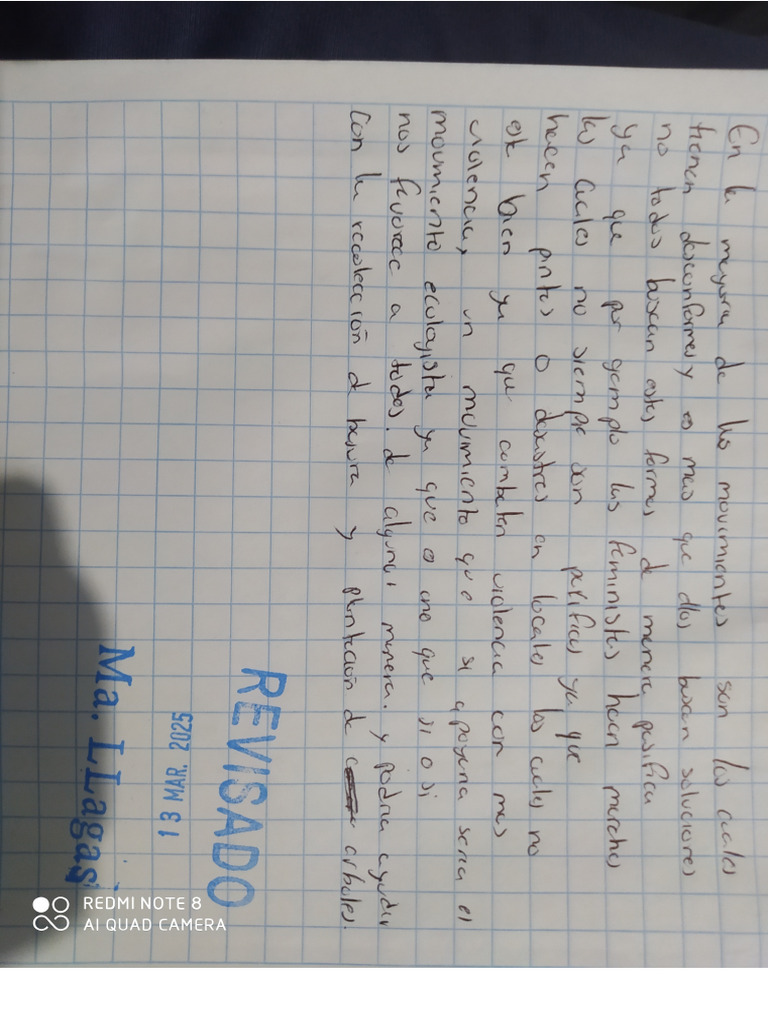 En la mayoria de los movimientos son los cuales
tienen desconformes y es mas que ellos buscan soluciones
no todos buscan estas formas de manera pasifica
ya que por ejemplo las feministas hacen marchas
los cuales no siempre son pasificas ya que
hacen pintas o desastres en locales los cuales no
esta bien ya que combaten violencia con mas
violencia, un movimiento que si apoyaria seria el
movimiento ecologista ya que es uno que si o si
nos favorece a todos. de alguna manera. y podria ayudar
Con la recoleccion de basura y plantacion de arboles.
REVISADO
13 MAR. 2025
Ma. LLagas
REDMI NOTE 8
AI QUAD CAMERA